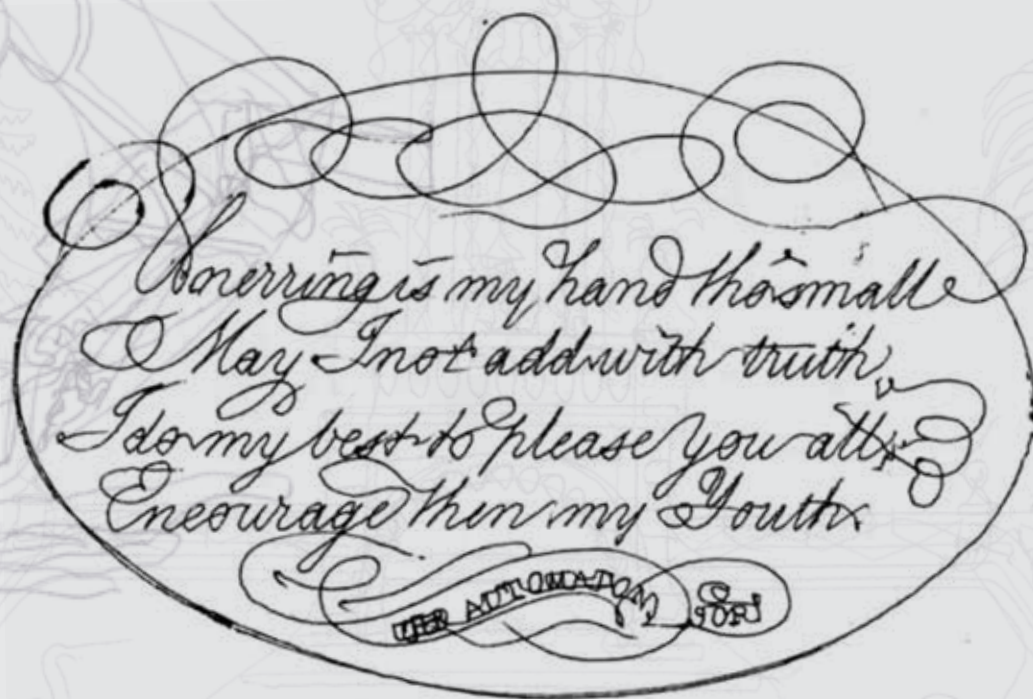 Unerring is my hand tho small
May I not add with truth
I do my best to please you all
Encourage then my Youth
AUTOMATON